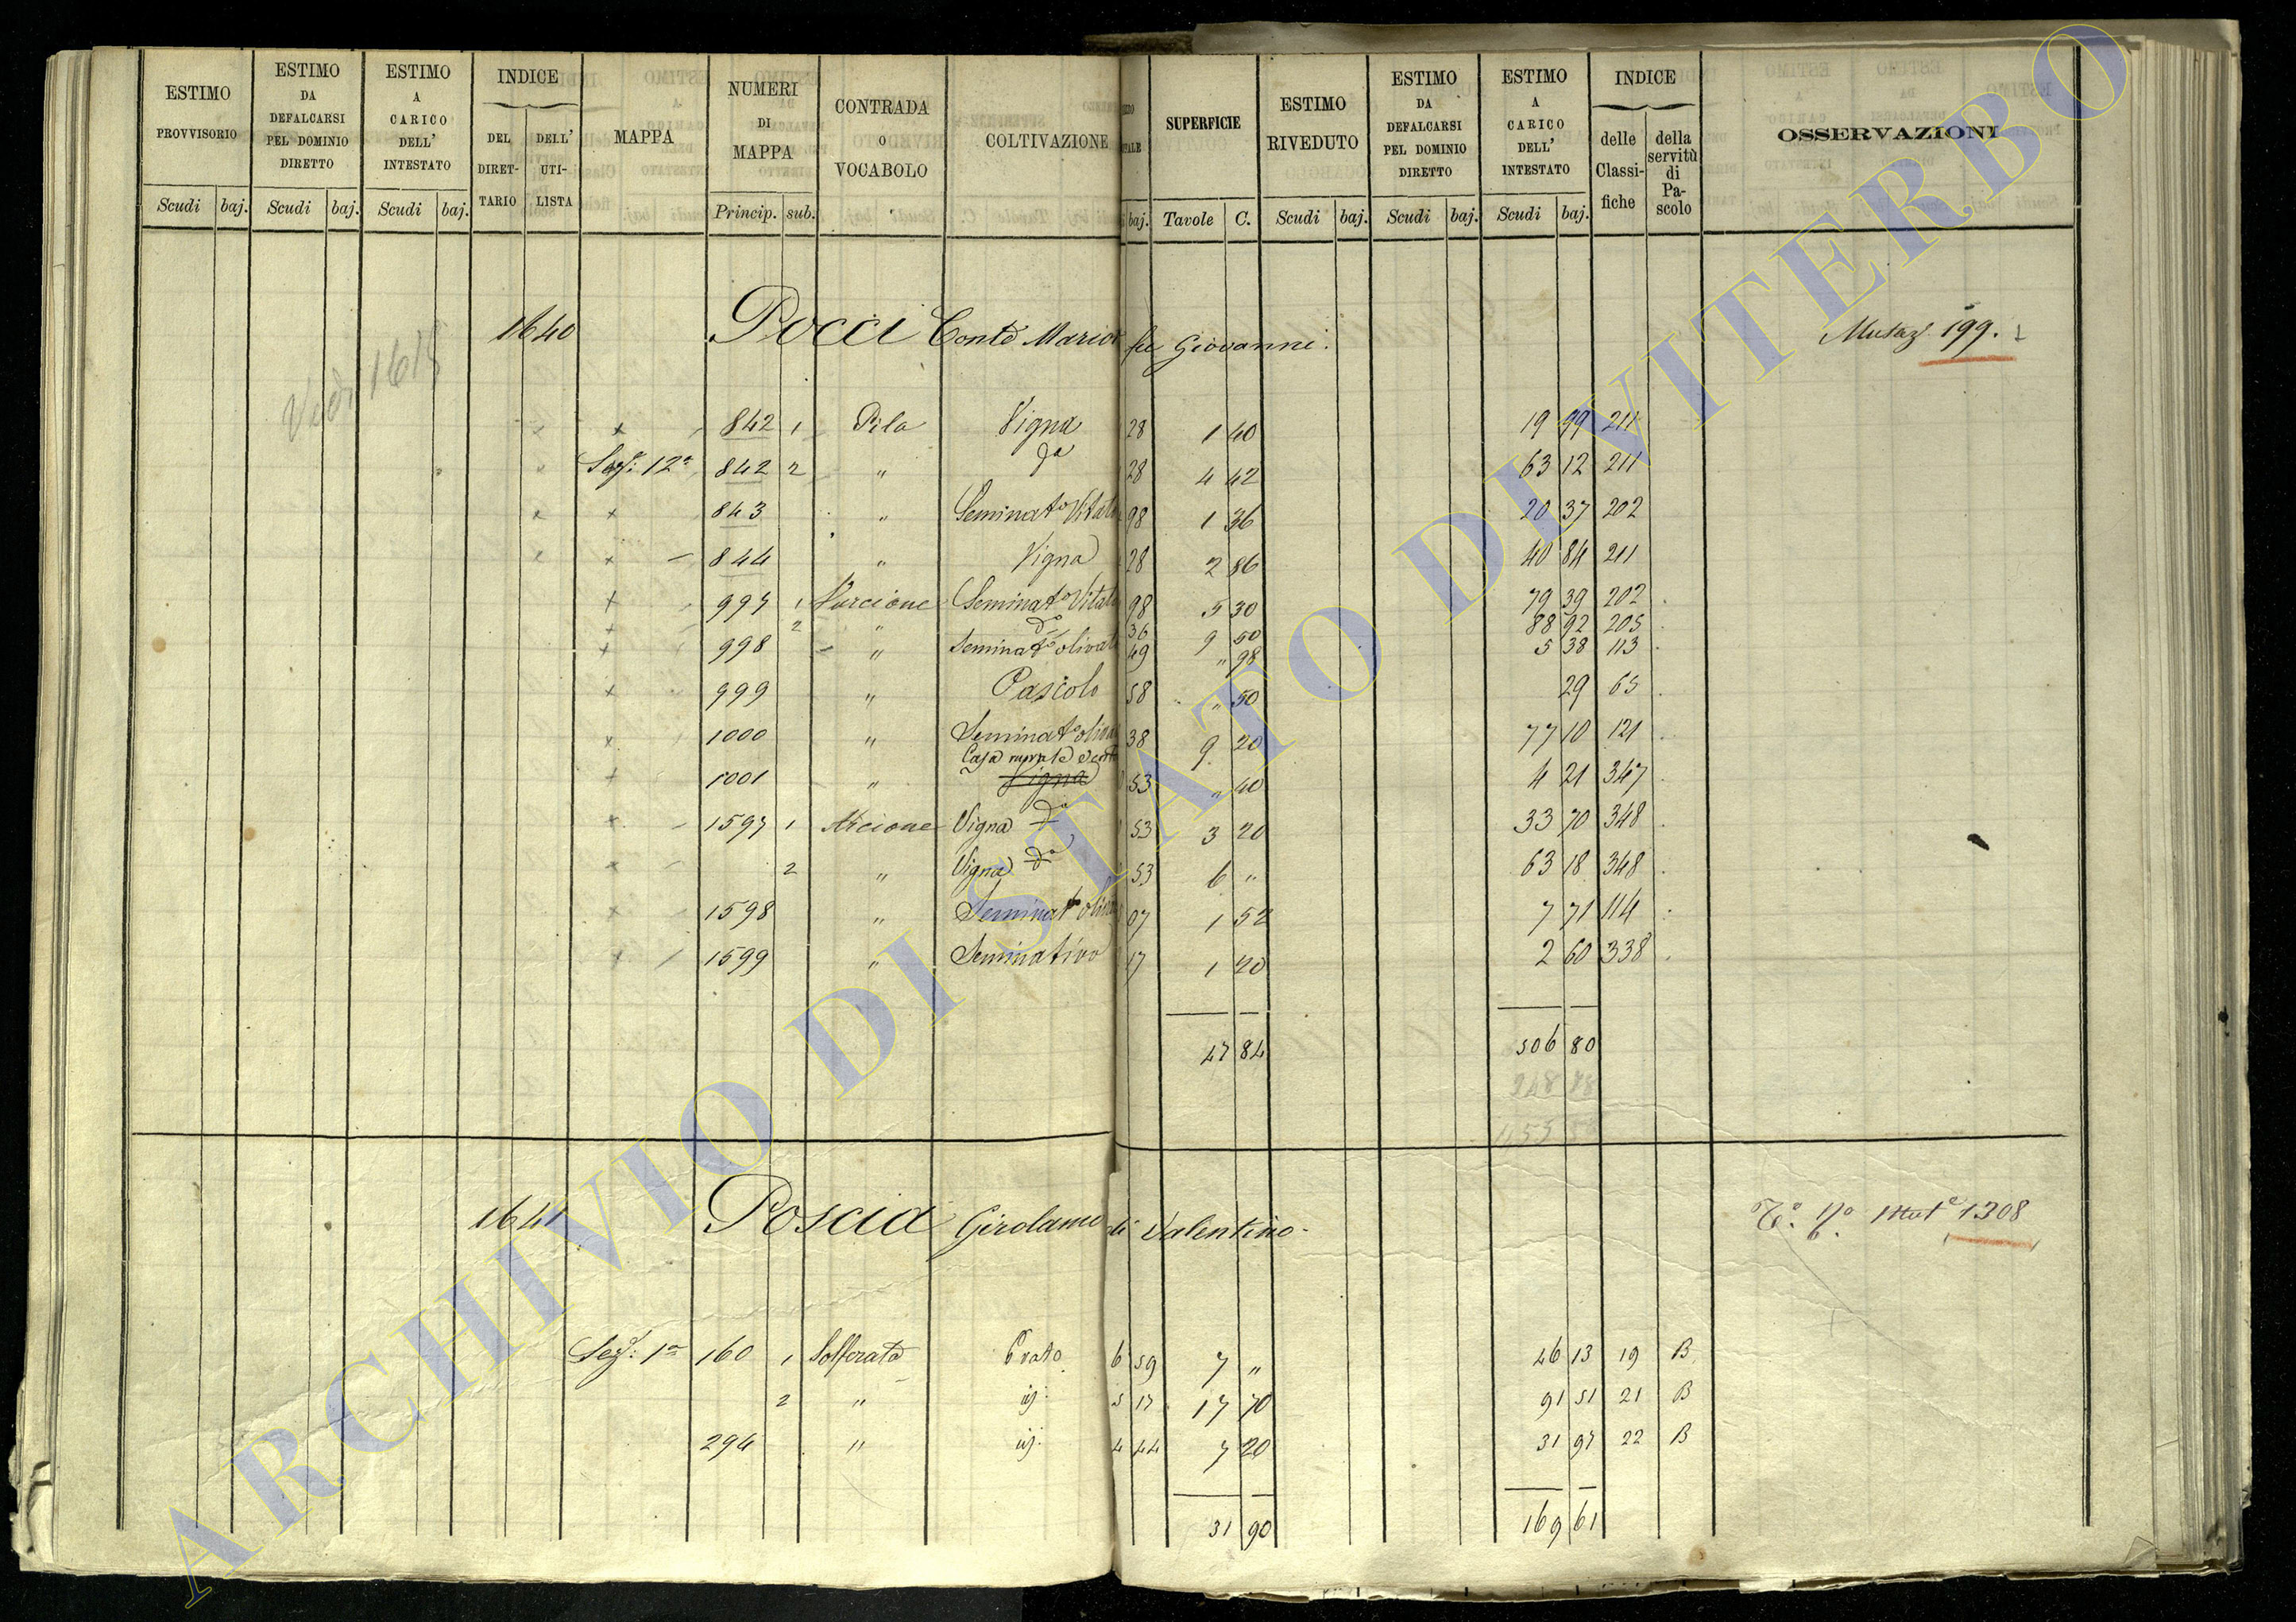 ESTIMO PROVVISORIO | ESTIMO DA DEFALCARSI PEL DOMINIO DIRETTO | ESTIMO A CARICO DELL' INTESTATO | INDICE | MAPPA | NUMERI DI MAPPA | CONTRADA O VOCABOLO | COLTIVAZIONE | SUPERFICIE | ESTIMO RIVEDUTO | ESTIMO DA DEFALCARSI PEL DOMINIO DIRETTO | ESTIMO A CARICO DELL' INTESTATO | INDICE | OSSERVAZIONI
DEL DIRETTARIO | DELL' UTILISTA | delle Classifiche | della servitù di Pascolo
Scudi | baj. | Scudi | baj. | Scudi | baj. | Princip. | sub. | baj. | Tavole | C. | Scudi | baj. | Scudi | baj. | Scudi | baj.
1640 Pocci Conte Mario fu Giovanni. Mutaz. 199.
Vedi 1615
842 1 Pila Vigna 28 1 40 19 99 211
Sez: 12a 842 2 " da 28 4 42 63 12 211
843 " Seminato Vitato 98 1 36 20 37 202
844 " Vigna 28 2 86 40 84 211
997 1 Seminato Vitato 98 5 30 79 39 202
2 " do 36 9 50 88 92 205
998 " Seminato olivato 49 " 98 5 38 113
999 " Pascolo 58 " 50 29 65
1000 " Seminato olivato 38 9 20 77 10 121
Casa
1001 " Vigna 53 " 40 4 21 347
1597 1 Arcione Vigna da 53 3 20 33 70 348
2 " Vigna da 53 6 " 63 18 348
1598 " Seminato olivato 07 1 52 7 71 114
1599 " Seminativo 17 1 20 2 60 338
47 84 506 80
1641 Poscia Girolamo di Valentino. 1308
Sez: 1a 160 1 Solforata Prato 6 59 7 " 46 13 19 B
2 " id. 5 17 17 70 91 51 21 B
294 " id. 4 44 7 20 31 97 22 B
31 90 169 61
ARCHIVIO DI STATO DI VITERBO